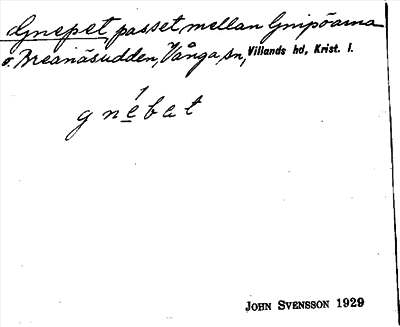 Gnepet, passet, mellan Gnipöarna
o. Breanäsudden, Vånga sn, Villands hd, Krist. l.
gnébat
JOHN SVENSSON 1929